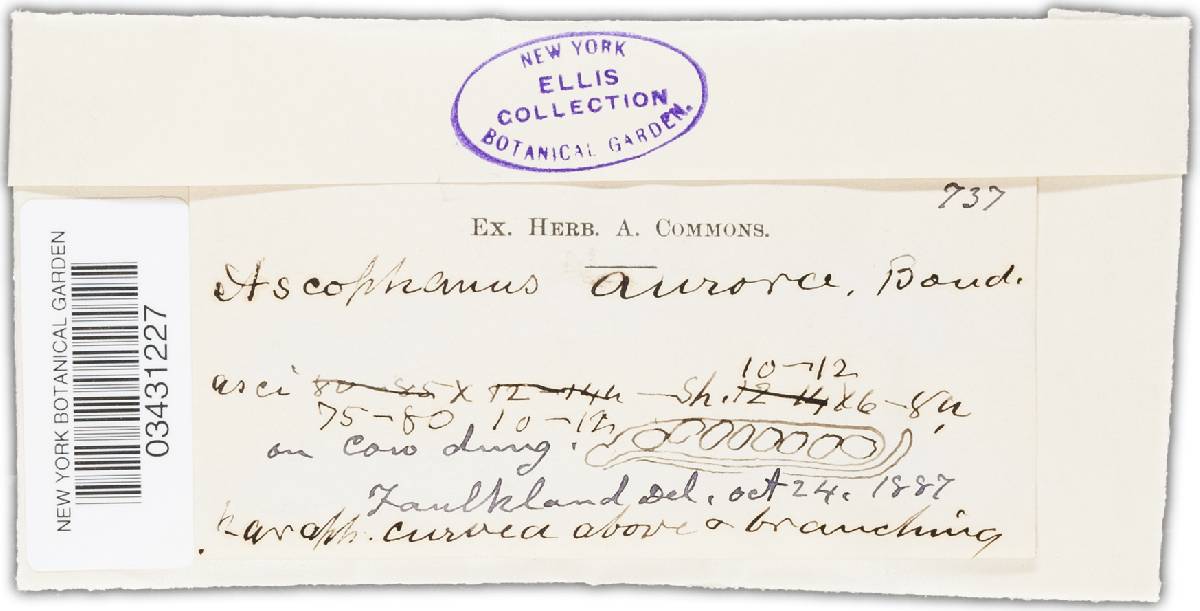 NEW YORK
ELLIS
COLLECTION
BOTANICAL GARDEN.
737
EX. HERB. A. COMMONS.
Ascophanus aurora, Boud.
10-12
asci 80-85 x 12-14μ — Sh. 12-14 x 6-8μ
75-80 10-12
on cow dung.
Faulkland Del. oct 24. 1887
paraph. curved above & branching
NEW YORK BOTANICAL GARDEN
03431227